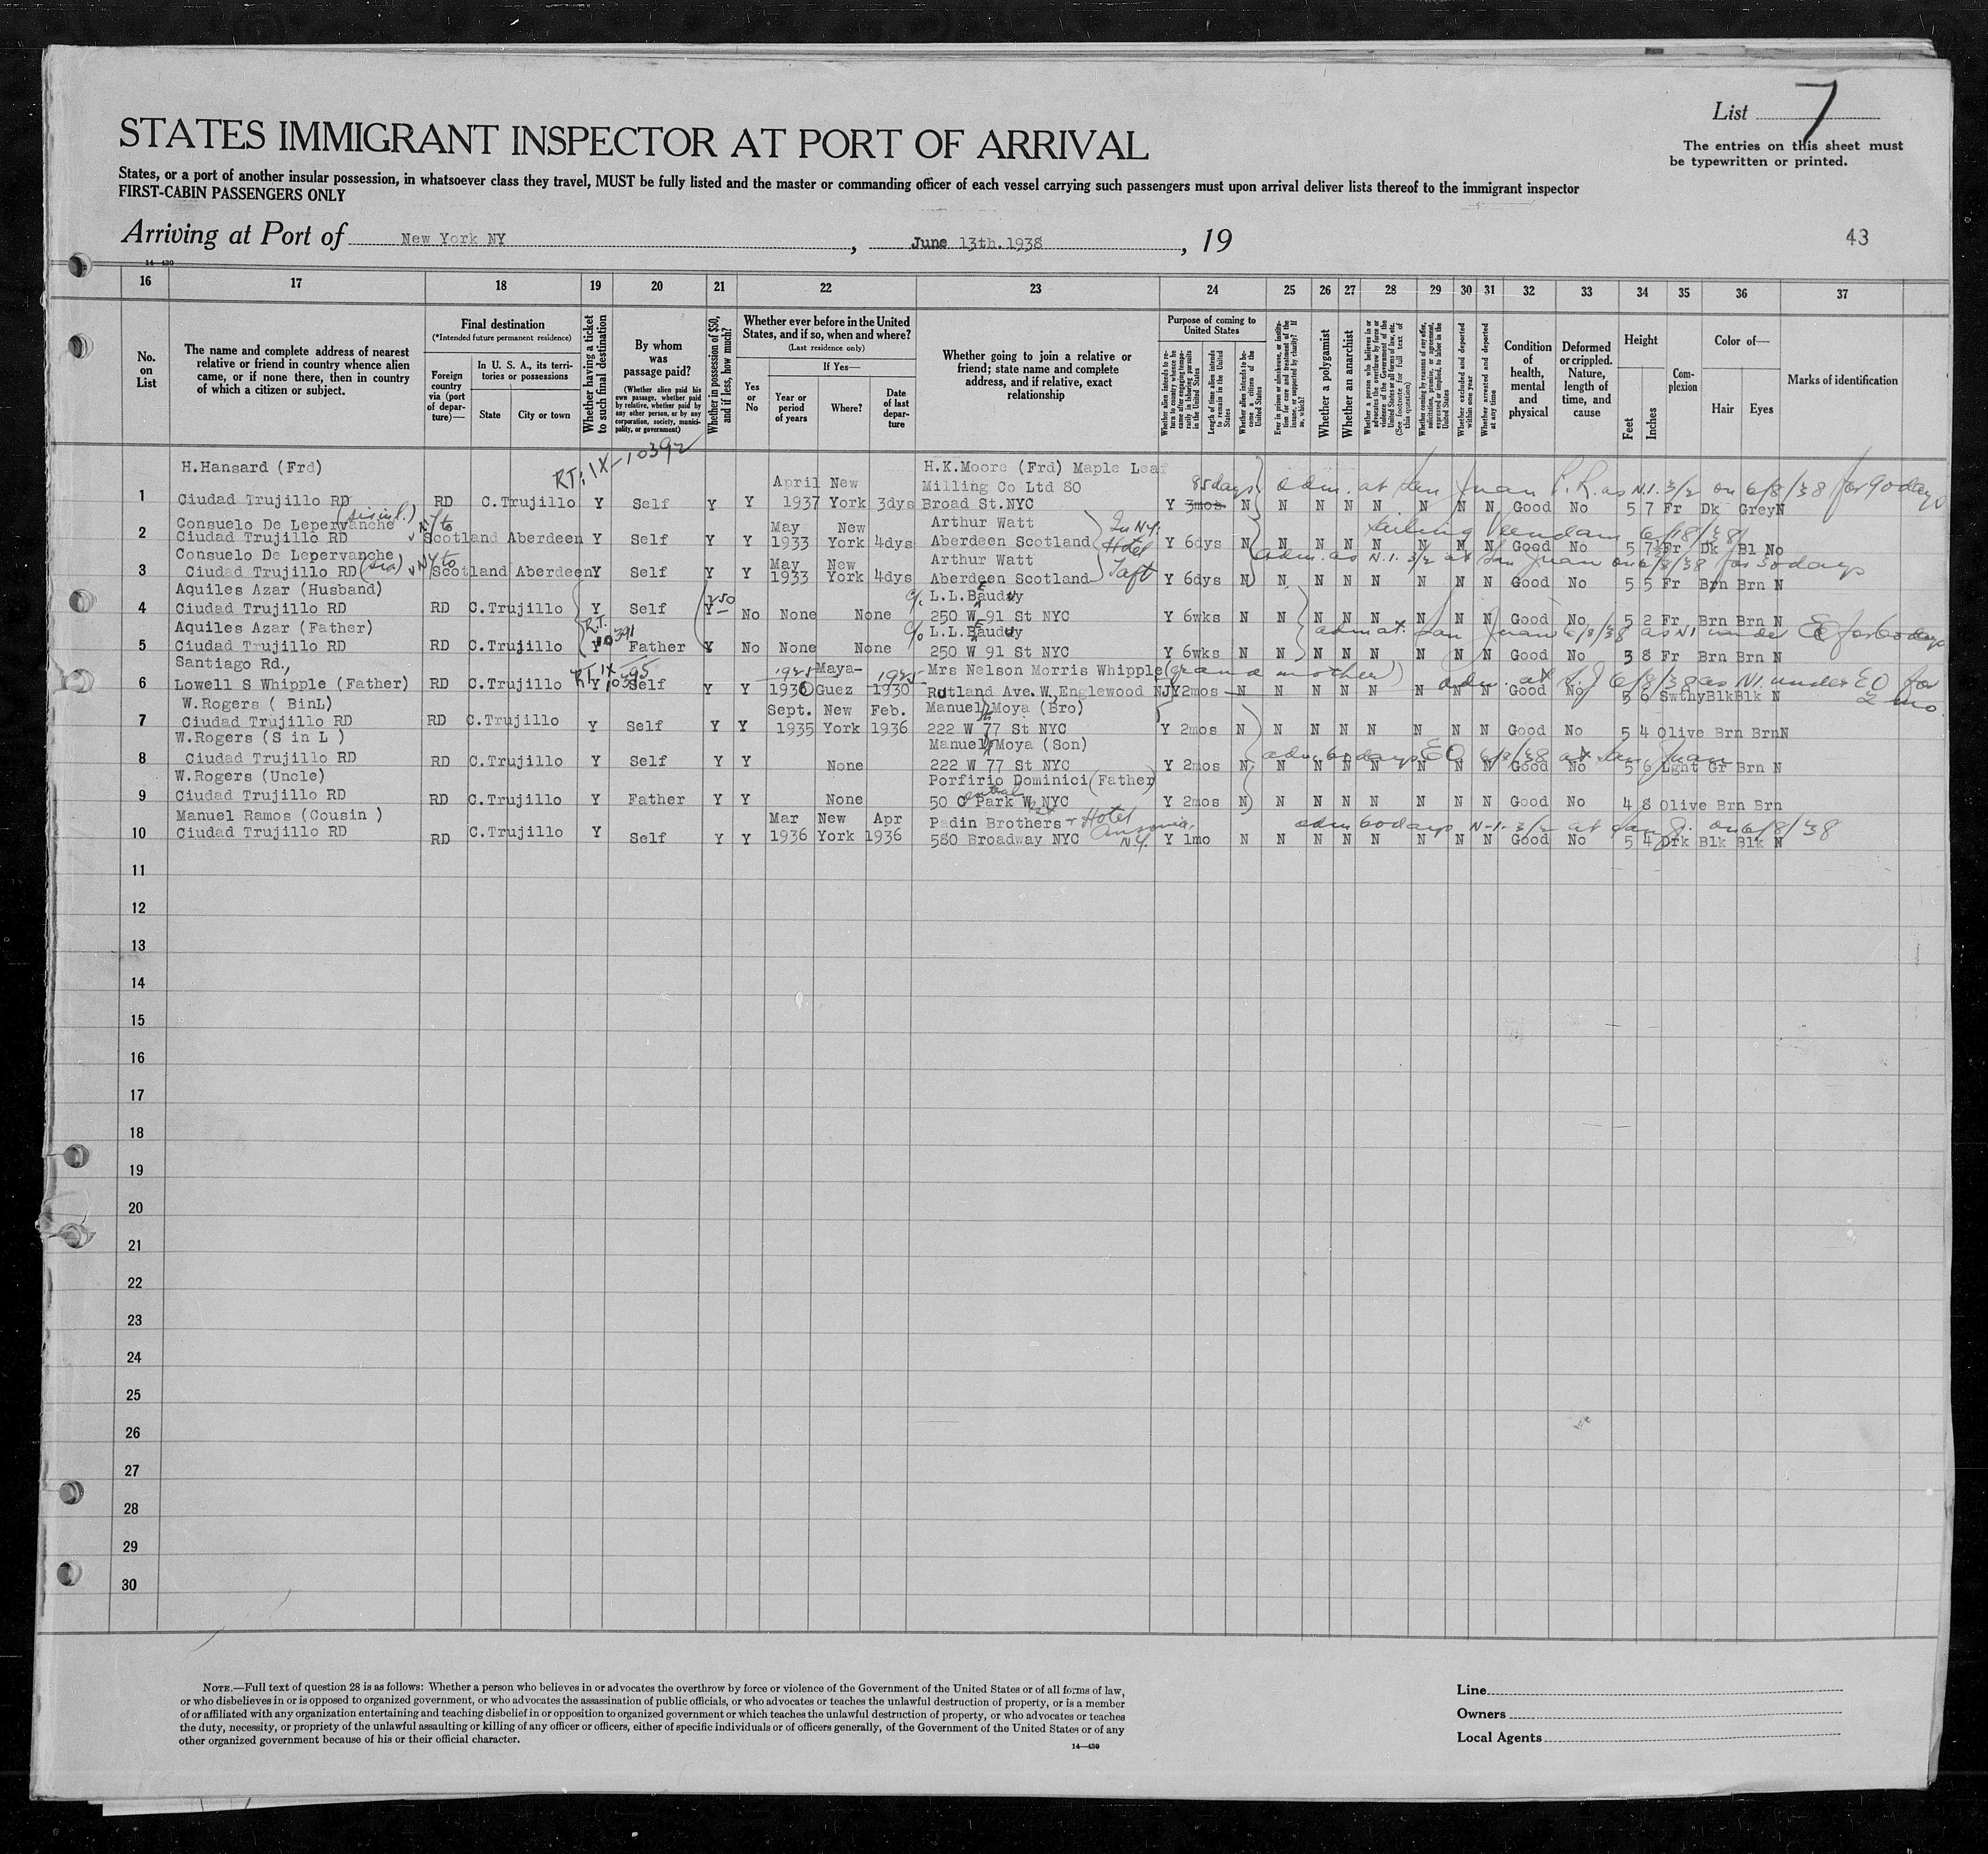 List 7
The entries on this sheet must
be typewritten or printed.
STATES IMMIGRANT INSPECTOR AT PORT OF ARRIVAL
States, or a port of another insular possession, in whatsoever class they travel, MUST be fully listed and the master or commanding officer of each vessel carrying such passengers must upon arrival deliver lists thereof to the immigrant inspector
FIRST-CABIN PASSENGERS ONLY
Arriving at Port of New York NY, June 13th.1938, 19
43
14—430
16 17 18 19 20 21 22 23 24 25 26 27 28 29 30 31 32 33 34 35 36 37
No. on List
The name and complete address of nearest
relative or friend in country whence alien
came, or if none there, then in country
of which a citizen or subject.
Final destination
(*Intended future permanent residence)
Foreign country via (port of departure)—
In U. S. A., its territories or possessions
State City or town
Whether having a ticket to such final destination
By whom was passage paid?
(Whether alien paid his own passage, whether paid by relative, whether paid by any other person, or by any corporation, society, municipality, or government)
Whether in possession of $50, and if less, how much?
Whether ever before in the United States, and if so, when and where?
(Last residence only)
Yes or No
If Yes—
Year or period of years
Where?
Date of last departure
Whether going to join a relative or
friend; state name and complete
address, and if relative, exact
relationship
Purpose of coming to United States
Whether alien intends to return to country whence he came after engaging temporarily in laboring pursuits in the United States
Length of time alien intends to remain in the United States
Whether alien intends to become a citizen of the United States
Ever in prison or almshouse, or institution for care and treatment of the insane, or supported by charity? If so, which?
Whether a polygamist
Whether an anarchist
Whether a person who believes in or advocates the overthrow by force or violence of the Government of the United States or all forms of law, etc. (See footnote for full text of this question)
Whether coming by reasons of any offer, solicitation, promise, or agreement, expressed or implied, to labor in the United States
Whether excluded and deported within one year
Whether arrested and deported at any time
Condition of health, mental and physical
Deformed or crippled. Nature, length of time, and cause
Height
Feet Inches
Complexion
Color of—
Hair Eyes
Marks of identification
RT: IX-10392
H.Hansard (Frd) April New H.K.Moore (Frd) Maple Leaf
Milling Co Ltd 80 88days adm. at San Juan P.R. as N.I. 3/2 on 6/8/38 for 90 days
1 Ciudad Trujillo RD RD C.Trujillo Y Self Y Y 1937 York 3dys Broad St.NYC Y 3mos N N N N N N N N Good No 5 7 Fr Dk Grey N
Consuelo De Lepervanche (sis in l.) to May New Arthur Watt In N.Y. sailing Veendam 6/18/38
2 Ciudad Trujillo RD Scotland Aberdeen Y Self Y Y 1933 York 4dys Aberdeen Scotland Hotel Y 6dys N N N N N N N N Good No 5 7½ Fr Dk Bl No
Consuelo De Lepervanche (sis) NY to May New Arthur Watt Taft adm. as N.I. 3/2 at San Juan on 6/8/38 for 30 days
3 Ciudad Trujillo RD Scotland Aberdeen Y Self Y Y 1933 York 4dys Aberdeen Scotland Y 6dys N N N N N N N N Good No 5 5 Fr Brn Brn N
Aquiles Azar (Husband) 250 c/o L.L.Bauduy
4 Ciudad Trujillo RD RD C.Trujillo Y Self Y No None None 250 W 91 St NYC Y 6wks N N N N N N N N Good No 5 2 Fr Brn Brn N
Aquiles Azar (Father) R.T. 10391 c/o L.L.Bauduy adm at San Juan 6/8/38 as NI under EO for 60 days
5 Ciudad Trujillo RD RD C.Trujillo Y Father Y No None None 250 W 91 St NYC Y 6wks N N N N N N N N Good No 3 8 Fr Brn Brn N
Santiago Rd., RT IX 10395 1925 Maya- 1925 Mrs Nelson Morris Whipple (grand mother) adm. at S.J 6/8/38 as NI. under EO for 2 mo
6 Lowell S Whipple (Father) RD C.Trujillo Y Self Y Y 1930 Guez 1930 Rutland Ave. W, Englewood NJ Y 2mos N N N N N N N N Good No 5 6 Swthy Blk Blk N
W.Rogers ( BinL) Sept. New Feb. Manuel Moya (Bro)
7 Ciudad Trujillo RD RD C.Trujillo Y Self Y Y 1935 York 1936 222 W 77 St NYC Y 2mos N N N N N N N N Good No 5 4 Olive Brn Brn N
W.Rogers (S in L ) Manuel Moya (Son) adm 60 days EO 6/8/38 at San Juan
8 Ciudad Trujillo RD RD C.Trujillo Y Self Y Y None 222 W 77 St NYC Y 2mos N N N N N N N N Good No 5 6 Lght Gr Brn N
W.Rogers (Uncle) Porfirio Dominici (Father)
9 Ciudad Trujillo RD RD C.Trujillo Y Father Y Y None 50 Central Park W. NYC Y 2mos N N N N N N N N Good No 4 8 Olive Brn Brn
Manuel Ramos (Cousin ) Mar New Apr Padin Brothers + Hotel Ansonia, N.Y. adm 60 days N-I- 3/2 at San J. on 6/8/38
10 Ciudad Trujillo RD RD C.Trujillo Y Self Y Y 1936 York 1936 580 Broadway NYC Y 1mo N N N N N N N N Good No 5 4 Drk Blk Blk N
11
12
13
14
15
16
17
18
19
20
21
22
23
24
25
26
27
28
29
30
NOTE.—Full text of question 28 is as follows: Whether a person who believes in or advocates the overthrow by force or violence of the Government of the United States or of all forms of law,
or who disbelieves in or is opposed to organized government, or who advocates the assassination of public officials, or who advocates or teaches the unlawful destruction of property, or is a member
of or affiliated with any organization entertaining and teaching disbelief in or opposition to organized government or which teaches the unlawful destruction of property, or who advocates or teaches
the duty, necessity, or propriety of the unlawful assaulting or killing of any officer or officers, either of specific individuals or of officers generally, of the Government of the United States or of any
other organized government because of his or their official character.
14—430
Line
Owners
Local Agents